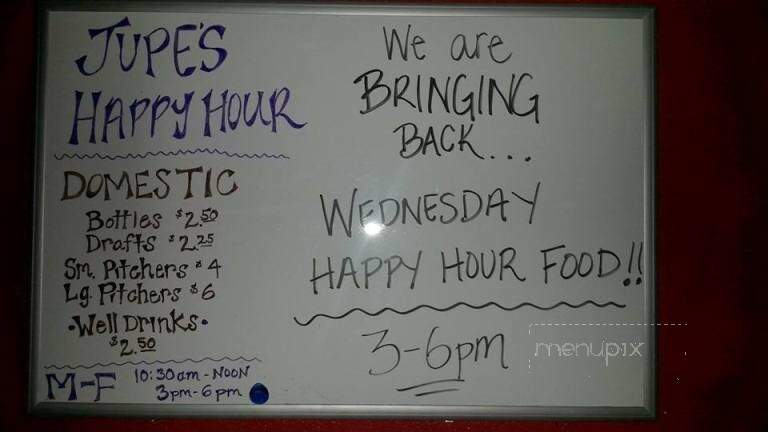 JUPE'S
HAPPY HOUR
DOMESTIC
Bottles $2.50
Drafts $2.25
Sm. Pitchers $4
Lg. Pitchers $6
•Well Drinks•
$2.50
M-F 10:30am-NOON
3pm-6pm
We are
BRINGING
BACK...
WEDNESDAY
HAPPY HOUR FOOD!!
3-6pm
menupix